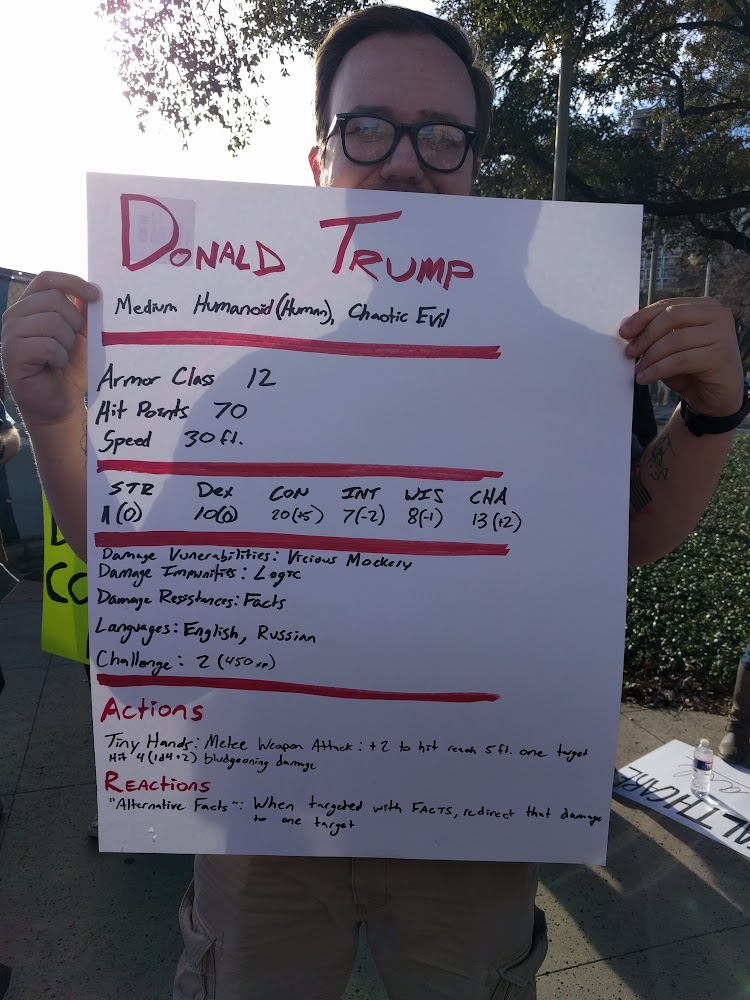 Donald Trump
Medium Humanoid (Human), Chaotic Evil
Armor Class 12
Hit Points 70
Speed 30 ft.
STR Dex CON INT WIS CHA
11 (0) 10(0) 20 (+5) 7(-2) 8(-1) 13 (+2)
Damage Vunerabilities: Vicious Mockery
Damage Impunities: Logic
Damage Resistances: Facts
Languages: English, Russian
Challenge: 2 (450 xp)
Actions
Tiny Hands: Melee Weapon Attack: +2 to hit reach 5 ft. one target
Hit 4 (1d4+2) bludgeoning damage
Reactions
"Alternative Facts": When targeted with FACTS, redirect that damage
to one target
CO
ALTHCARE